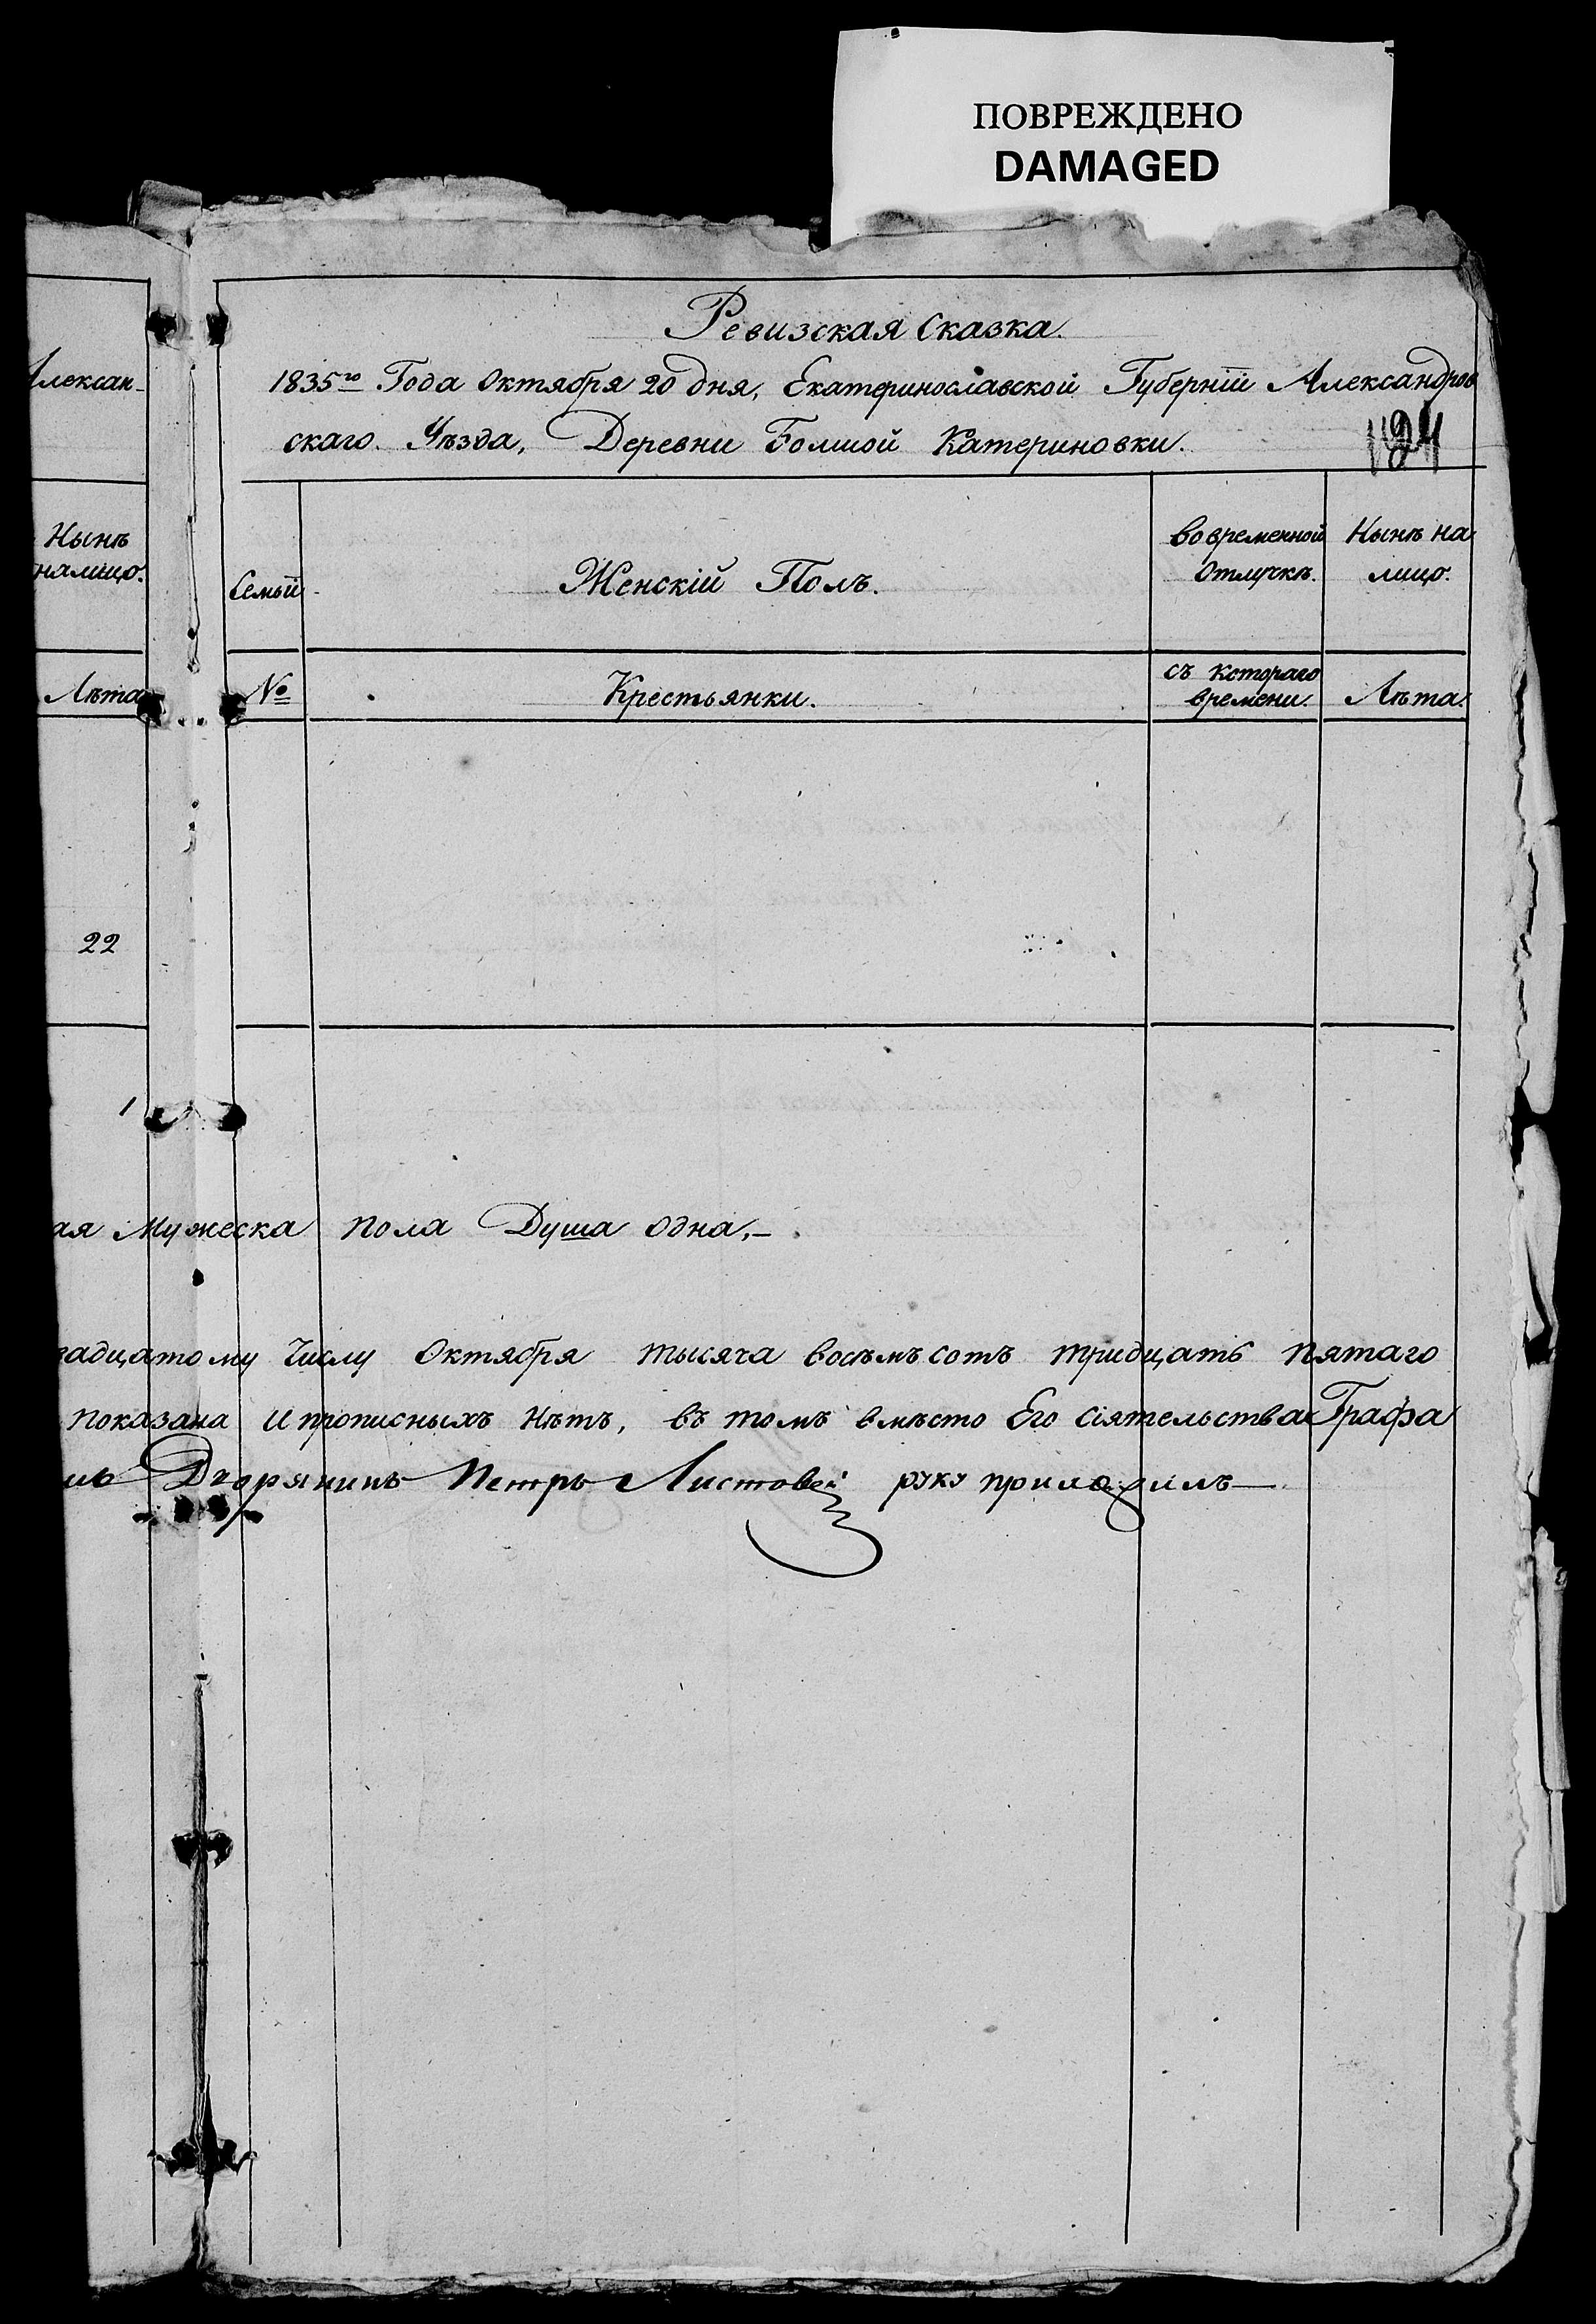 ПОВРЕЖДЕНО
DAMAGED
Ревизская Сказка.
1835го Года Октября 20 дня, Екатеринославской Губерніи Александров
скаго Уѣзда, Деревни Болшой Катериновки.
124
Алексан-
Нынѣ
налицо.
Лѣта
22
1
Семьи
Женскій Полъ.
Во временной
Отлучкѣ.
Нынѣ на
лицо.
№
Крестьянки.
съ котораго
времени.
Лѣта.
ая Мужеска пола Душа одна,-
задцатому Числу Октября тысяча восѣмъ сотъ тридцать пятаго
показана и прописныхъ Нѣтъ, въ томъ вмѣсто Его Сіятельства Графа
Дворянинъ Петръ Листовей руку приложилъ